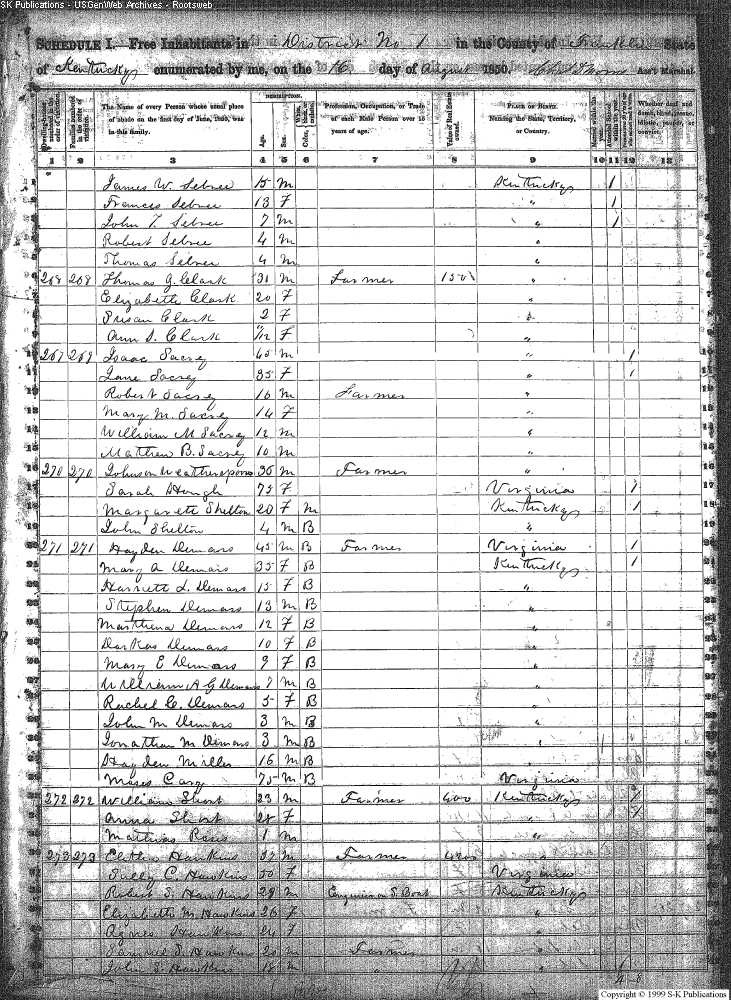 SK Publications - USGenWeb Archives - Rootsweb
SCHEDULE I. Free Inhabitants in District No 1 in the County of Franklin State
of Kentucky enumerated by me, on the 16 day of August 1850. Ass't Marshal.
DESCRIPTION.
Dwelling-houses numbered in the order of visitation. Families numbered in the order of visitation. The Name of every Person whose usual place of abode on the first day of June, 1850, was in this family. Age. Sex. Color, White, black, or mulatto. Profession, Occupation, or Trade of each Male Person over 15 years of age. Value of Real Estate owned. PLACE OF BIRTH. Naming the State, Territory, or Country. Married within the year. Whether deaf and dumb, blind, insane, idiotic, pauper, or convict.
1 2 3 4 5 6 7 8 9 10 11 12 13
James W. Sebree 15 M Kentucky 1
Frances Sebree 13 F " 1
John T. Sebree 7 M " 1
Robert Sebree 4 M "
Thomas Sebree 4 M "
268 268 Thomas G. Clark 31 M Farmer 150 "
Elizabeth Clark 20 F "
Susan Clark 2 F "
Ann S. Clark /12 F "
269 269 Isaac Sacrey 45 M " 1
Jane Sacrey 35 F " 1
Robert Sacrey 16 M Farmer "
Mary M. Sacrey 14 F "
William M Sacrey 12 M "
Mathew B. Sacrey 10 M "
270 270 Johnson 36 M Farmer "
Sarah Hough 75 F Virginia 1
Margarett Shelton 20 F M Kentucky 1
John Shelton 4 M B "
271 271 Hayden Demars 45 M B Farmer Virginia 1
Mary A Demars 35 F B Kentucky 1
Harriett L. Demars 15 F B "
Stephen Demars 13 M B "
Marthena Demars 12 F B "
Darkas Demars 10 F B "
Mary E Demars 9 F B "
William A G Demars 7 M B "
Rachel C. Demars 5 F B "
John M Demars 3 M B "
Jonathan M Demars 3 M B "
Hayden Miller 16 M B "
Moses Cary 75 M B Virginia
272 272 William Short 23 M Farmer 400 Kentucky
Anna Short 28 F "
Mathias 1 M "
273 273 Hawkins 57 M Farmer "
Sally C. Hawkins 50 F Virginia
Robert S. Hawkins 28 M Engineer on S Boat Kentucky
Elizabeth M. Hawkins 26 F "
Agnes Hawkins 24 F "
Samuel S. Hawkins 20 M Farmer "
John S. Hawkins 18 M " "
Copyright © 1999 S-K Publications